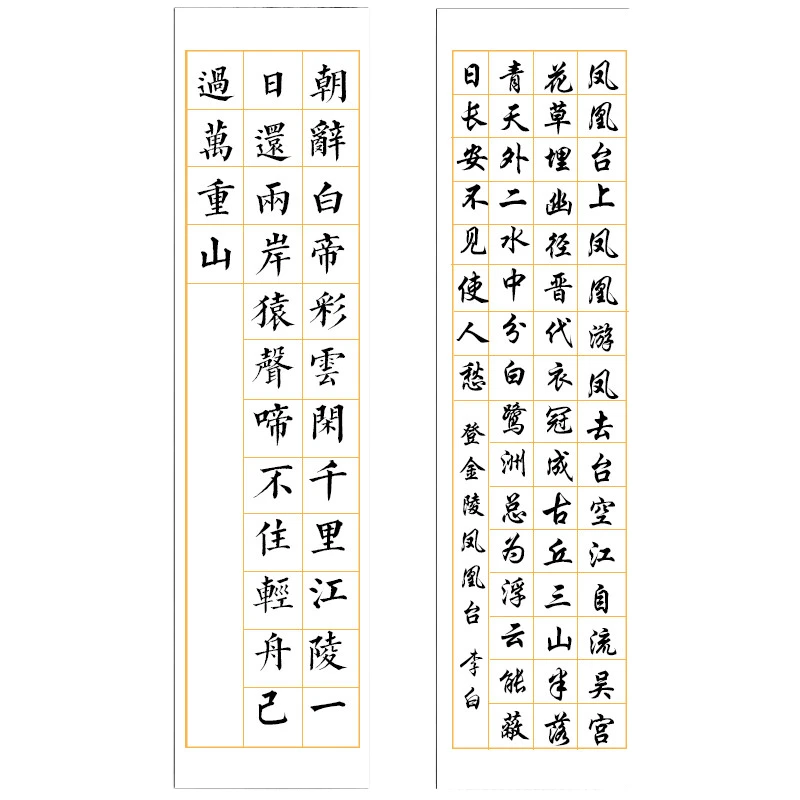 朝辭白帝彩雲閑千里江陵一
日還兩岸猿聲啼不住輕舟已
過萬重山
凤凰台上凤凰游凤去台空江自流吴宫
花草埋幽径晋代衣冠成古丘三山半落
青天外二水中分白鹭洲总为浮云能蔽
日长安不见使人愁 登金陵凤凰台 李白